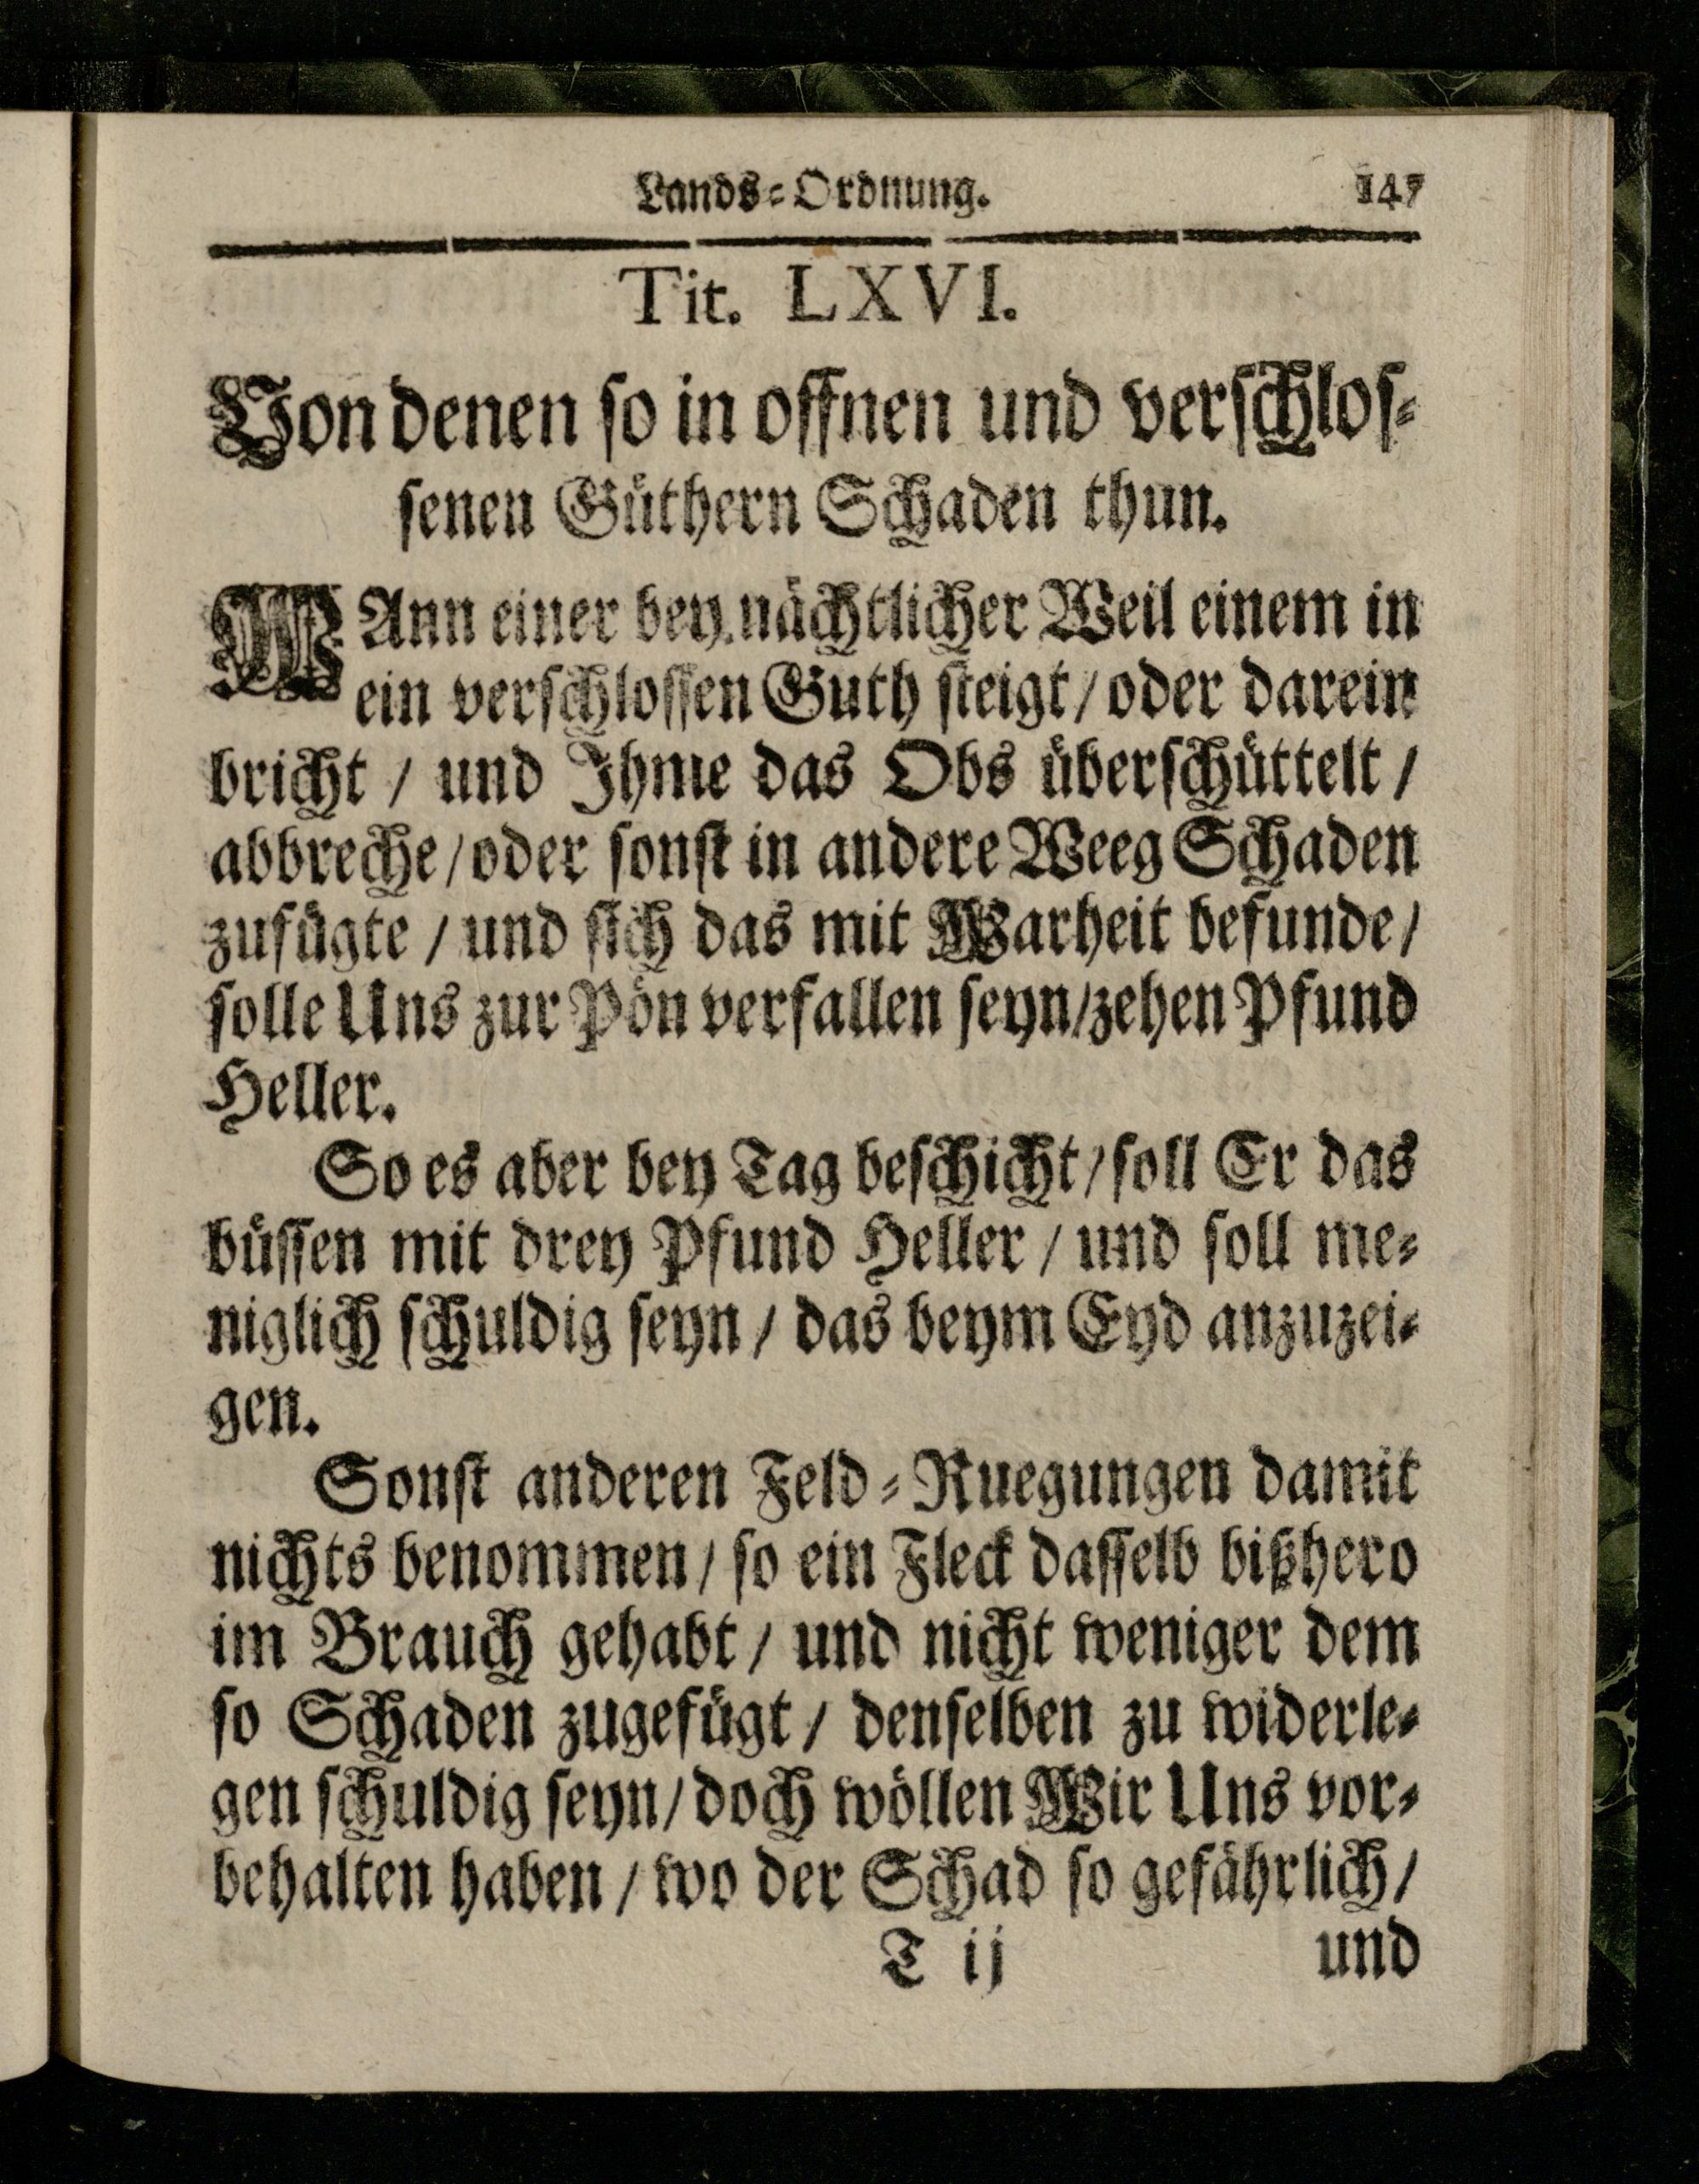 Lands-Ordnung. 147
Tit. LXVI.
Von denen so in offnen und verschlos-
senen Güthern Schaden thun.
WAnn einer bey nächtlicher Weil einem in
ein verschlossen Guth steigt / oder darein
bricht / und Ihme das Obs überschüttelt /
abbreche / oder sonst in andere Weeg Schaden
zufügte / und sich das mit Warheit befunde /
solle Uns zur Pön verfallen seyn / zehen Pfund
Heller.
So es aber bey Tag beschicht / soll Er das
büssen mit drey Pfund Heller / und soll me-
niglich schuldig seyn / das beym Eyd anzuzei-
gen.
Sonst anderen Feld-Ruegungen damit
nichts benommen / so ein Fleck dasselb bißhero
im Brauch gehabt / und nicht weniger dem
so Schaden zugefügt / denselben zu widerle-
gen schuldig seyn / doch wöllen Wir Uns vor-
behalten haben / wo der Schad so gefährlich /
T ij und